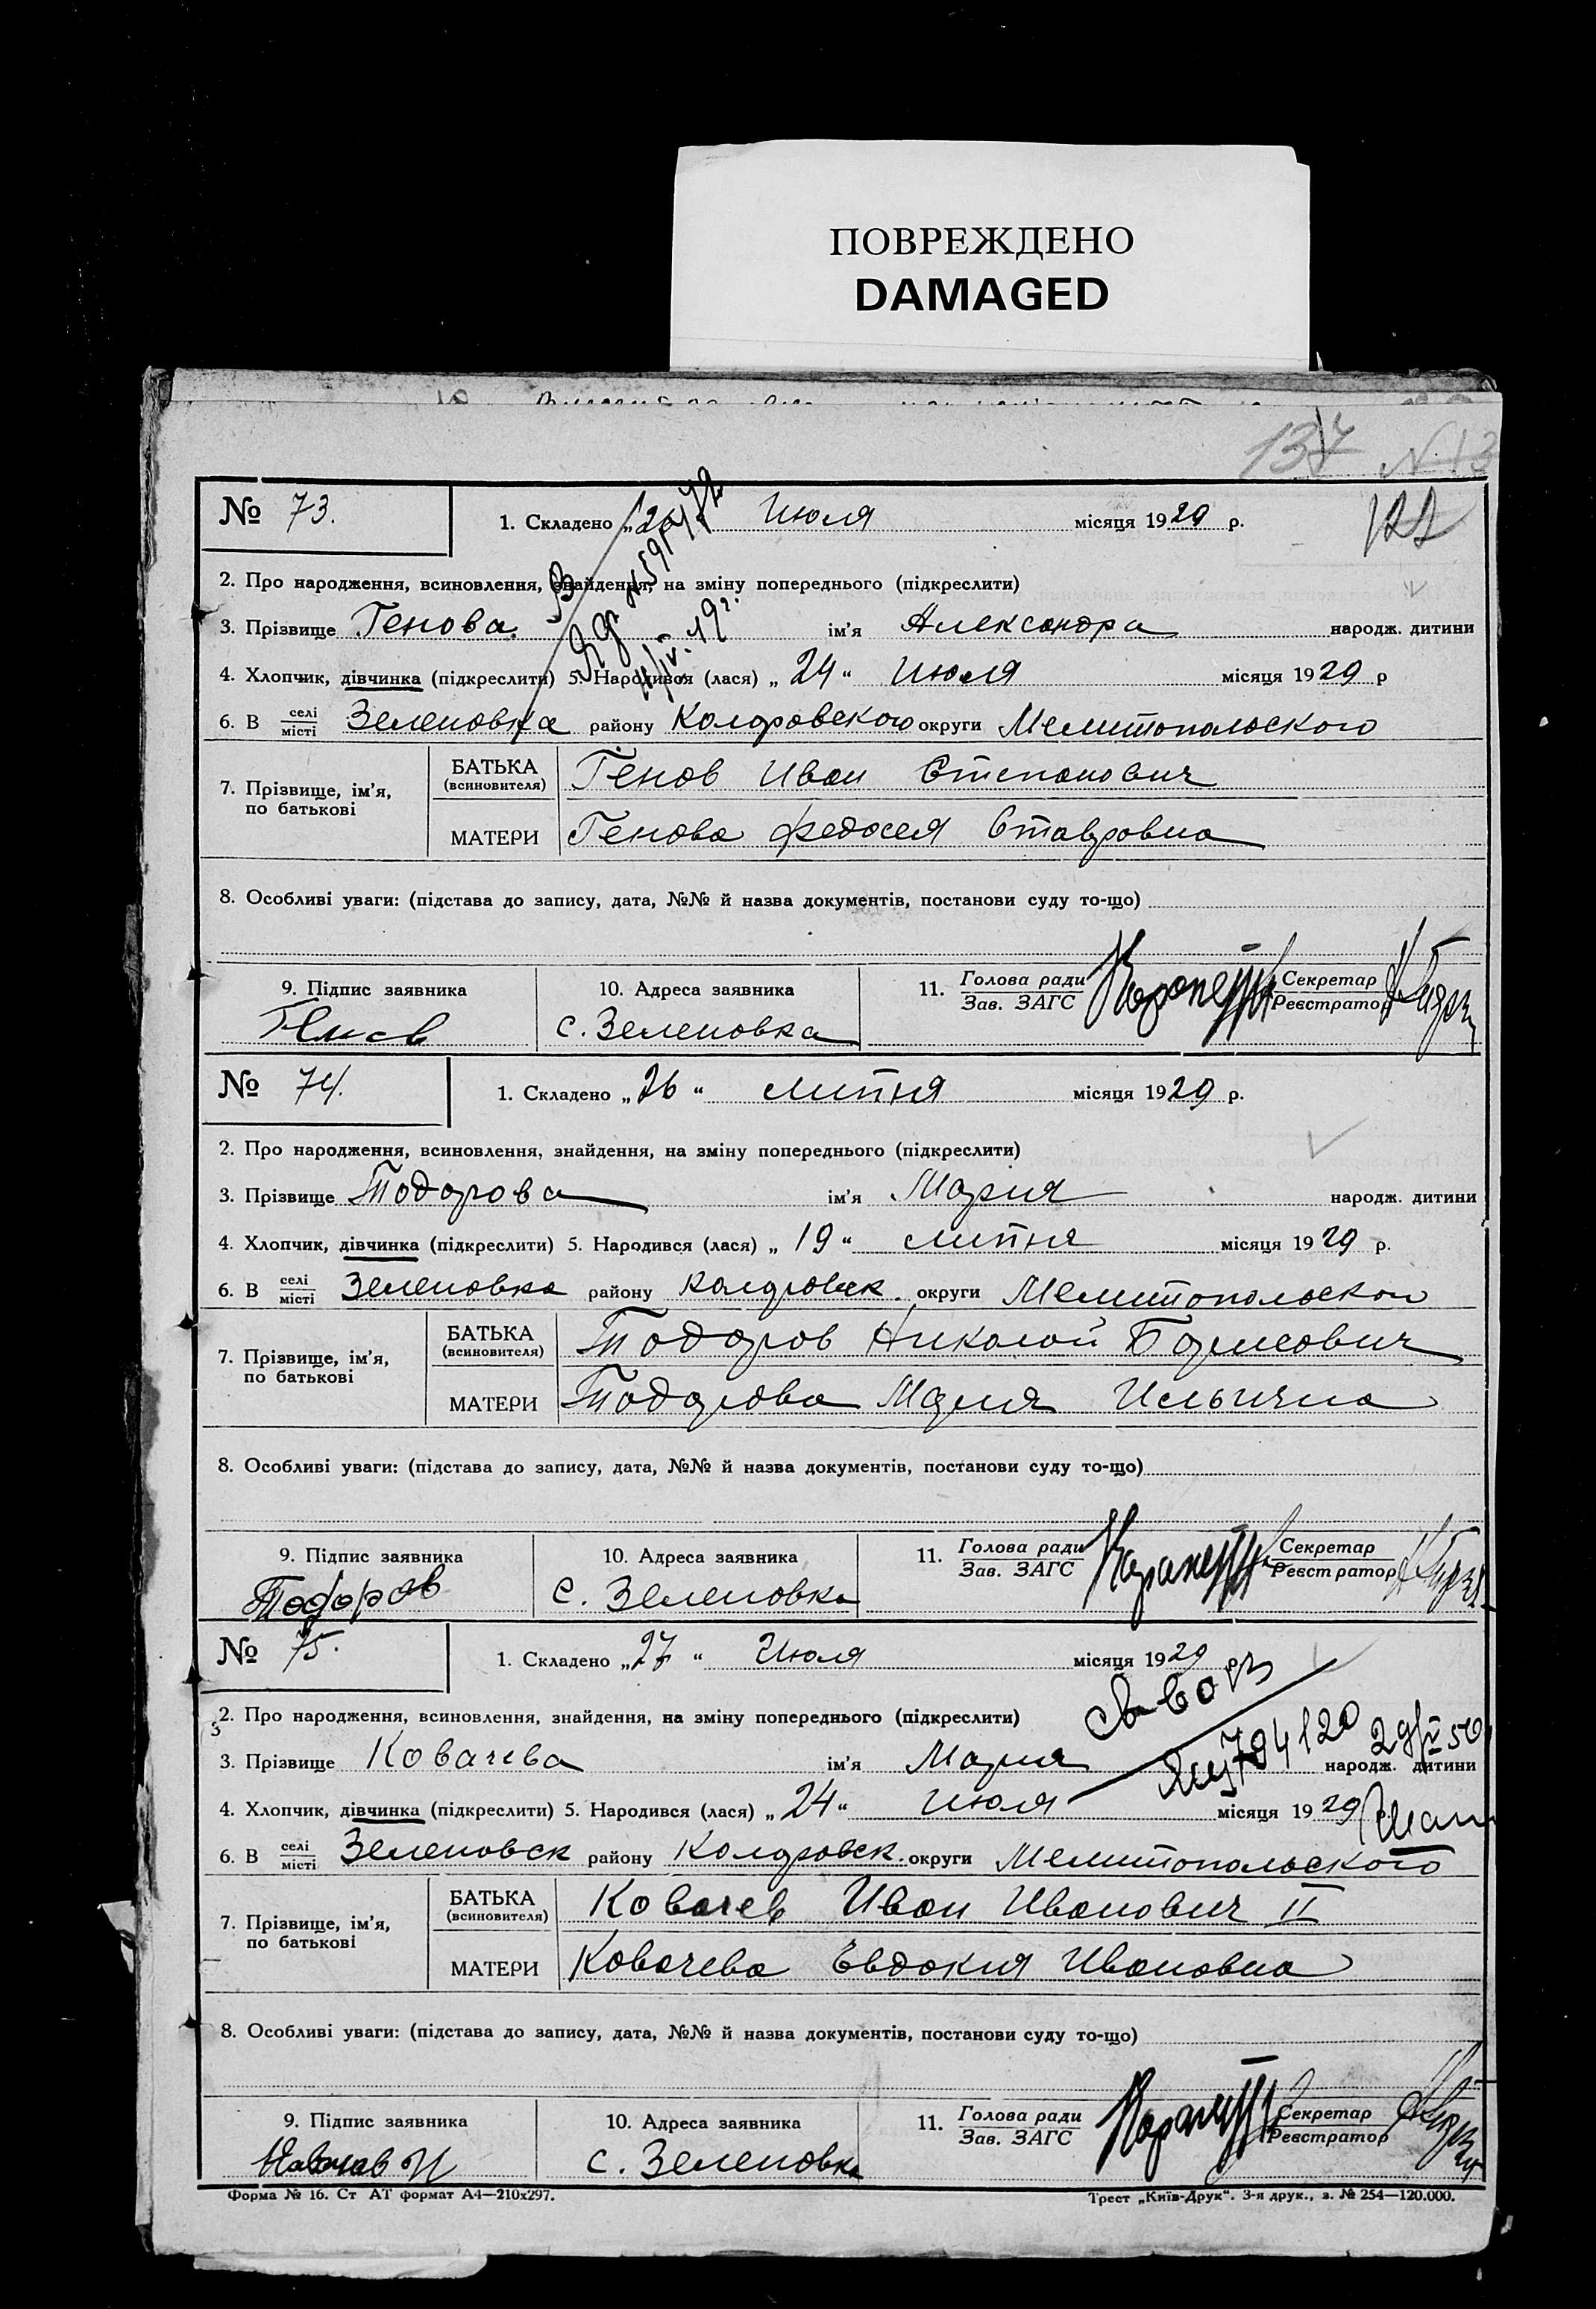 ПОВРЕЖДЕНО
DAMAGED
137 N 13
№ 73. 1. Складено „26“ Июля місяця 1929 р.
2. Про народження, всиновлення, знайдення, на зміну попереднього (підкреслити)
3. Прізвище Генова ім'я Александра народж. дитини
4. Хлопчик, дівчинка (підкреслити) 5. Народився (лася) „ 24 “ Июля місяця 1929 р
6. В селі місті Зеленовка району Коларовского округи Мелитопольского
7. Прізвище, ім'я, по батькові БАТЬКА (всиновителя) Генов Иван Степанович
МАТЕРИ Генова Федосея Ставровна
8. Особливі уваги: (підстава до запису, дата, №№ й назва документів, постанови суду то-що)
9. Підпис заявника 10. Адреса заявника 11. Голова ради Зав. ЗАГС Секретар Реєстратор
Генов с. Зеленовка
№ 74. 1. Складено „ 26 “ липня місяця 1929 р.
2. Про народження, всиновлення, знайдення, на зміну попереднього (підкреслити)
3. Прізвище Тодорова ім'я Мария народж. дитини
4. Хлопчик, дівчинка (підкреслити) 5. Народився (лася) „ 19 “ липня місяця 1929 р.
6. В селі місті Зеленовка району Коларовск. округи Мелитопольско
7. Прізвище, ім'я, по батькові БАТЬКА (всиновителя) Тодоров Николай Борисович
МАТЕРИ Тодорова Мария Ильична
8. Особливі уваги: (підстава до запису, дата, №№ й назва документів, постанови суду то-що)
9. Підпис заявника 10. Адреса заявника 11. Голова ради Зав. ЗАГС Секретар Реєстратор
Тодоров с. Зеленовка
№ 75. 1. Складено „ 27 “ Июля місяця 1929 р.
2. Про народження, всиновлення, знайдення, на зміну попереднього (підкреслити)
3. Прізвище Ковачева ім'я Мария народж. дитини
4. Хлопчик, дівчинка (підкреслити) 5. Народився (лася) „ 24 “ Июля місяця 1929
6. В селі місті Зеленовск району Коларовск. округи Мелитопольского
7. Прізвище, ім'я, по батькові БАТЬКА (всиновителя) Ковачев Иван Иванович II
МАТЕРИ Ковачева Евдокия Ивановна
8. Особливі уваги: (підстава до запису, дата, №№ й назва документів, постанови суду то-що)
9. Підпис заявника 10. Адреса заявника 11. Голова ради Зав. ЗАГС Секретар Реєстратор
Ковачев И с. Зеленовка
Форма № 16. Ст АТ формат А4—210х297. Трест „Київ-Друк“. 3-я друк., з. № 254—120.000.